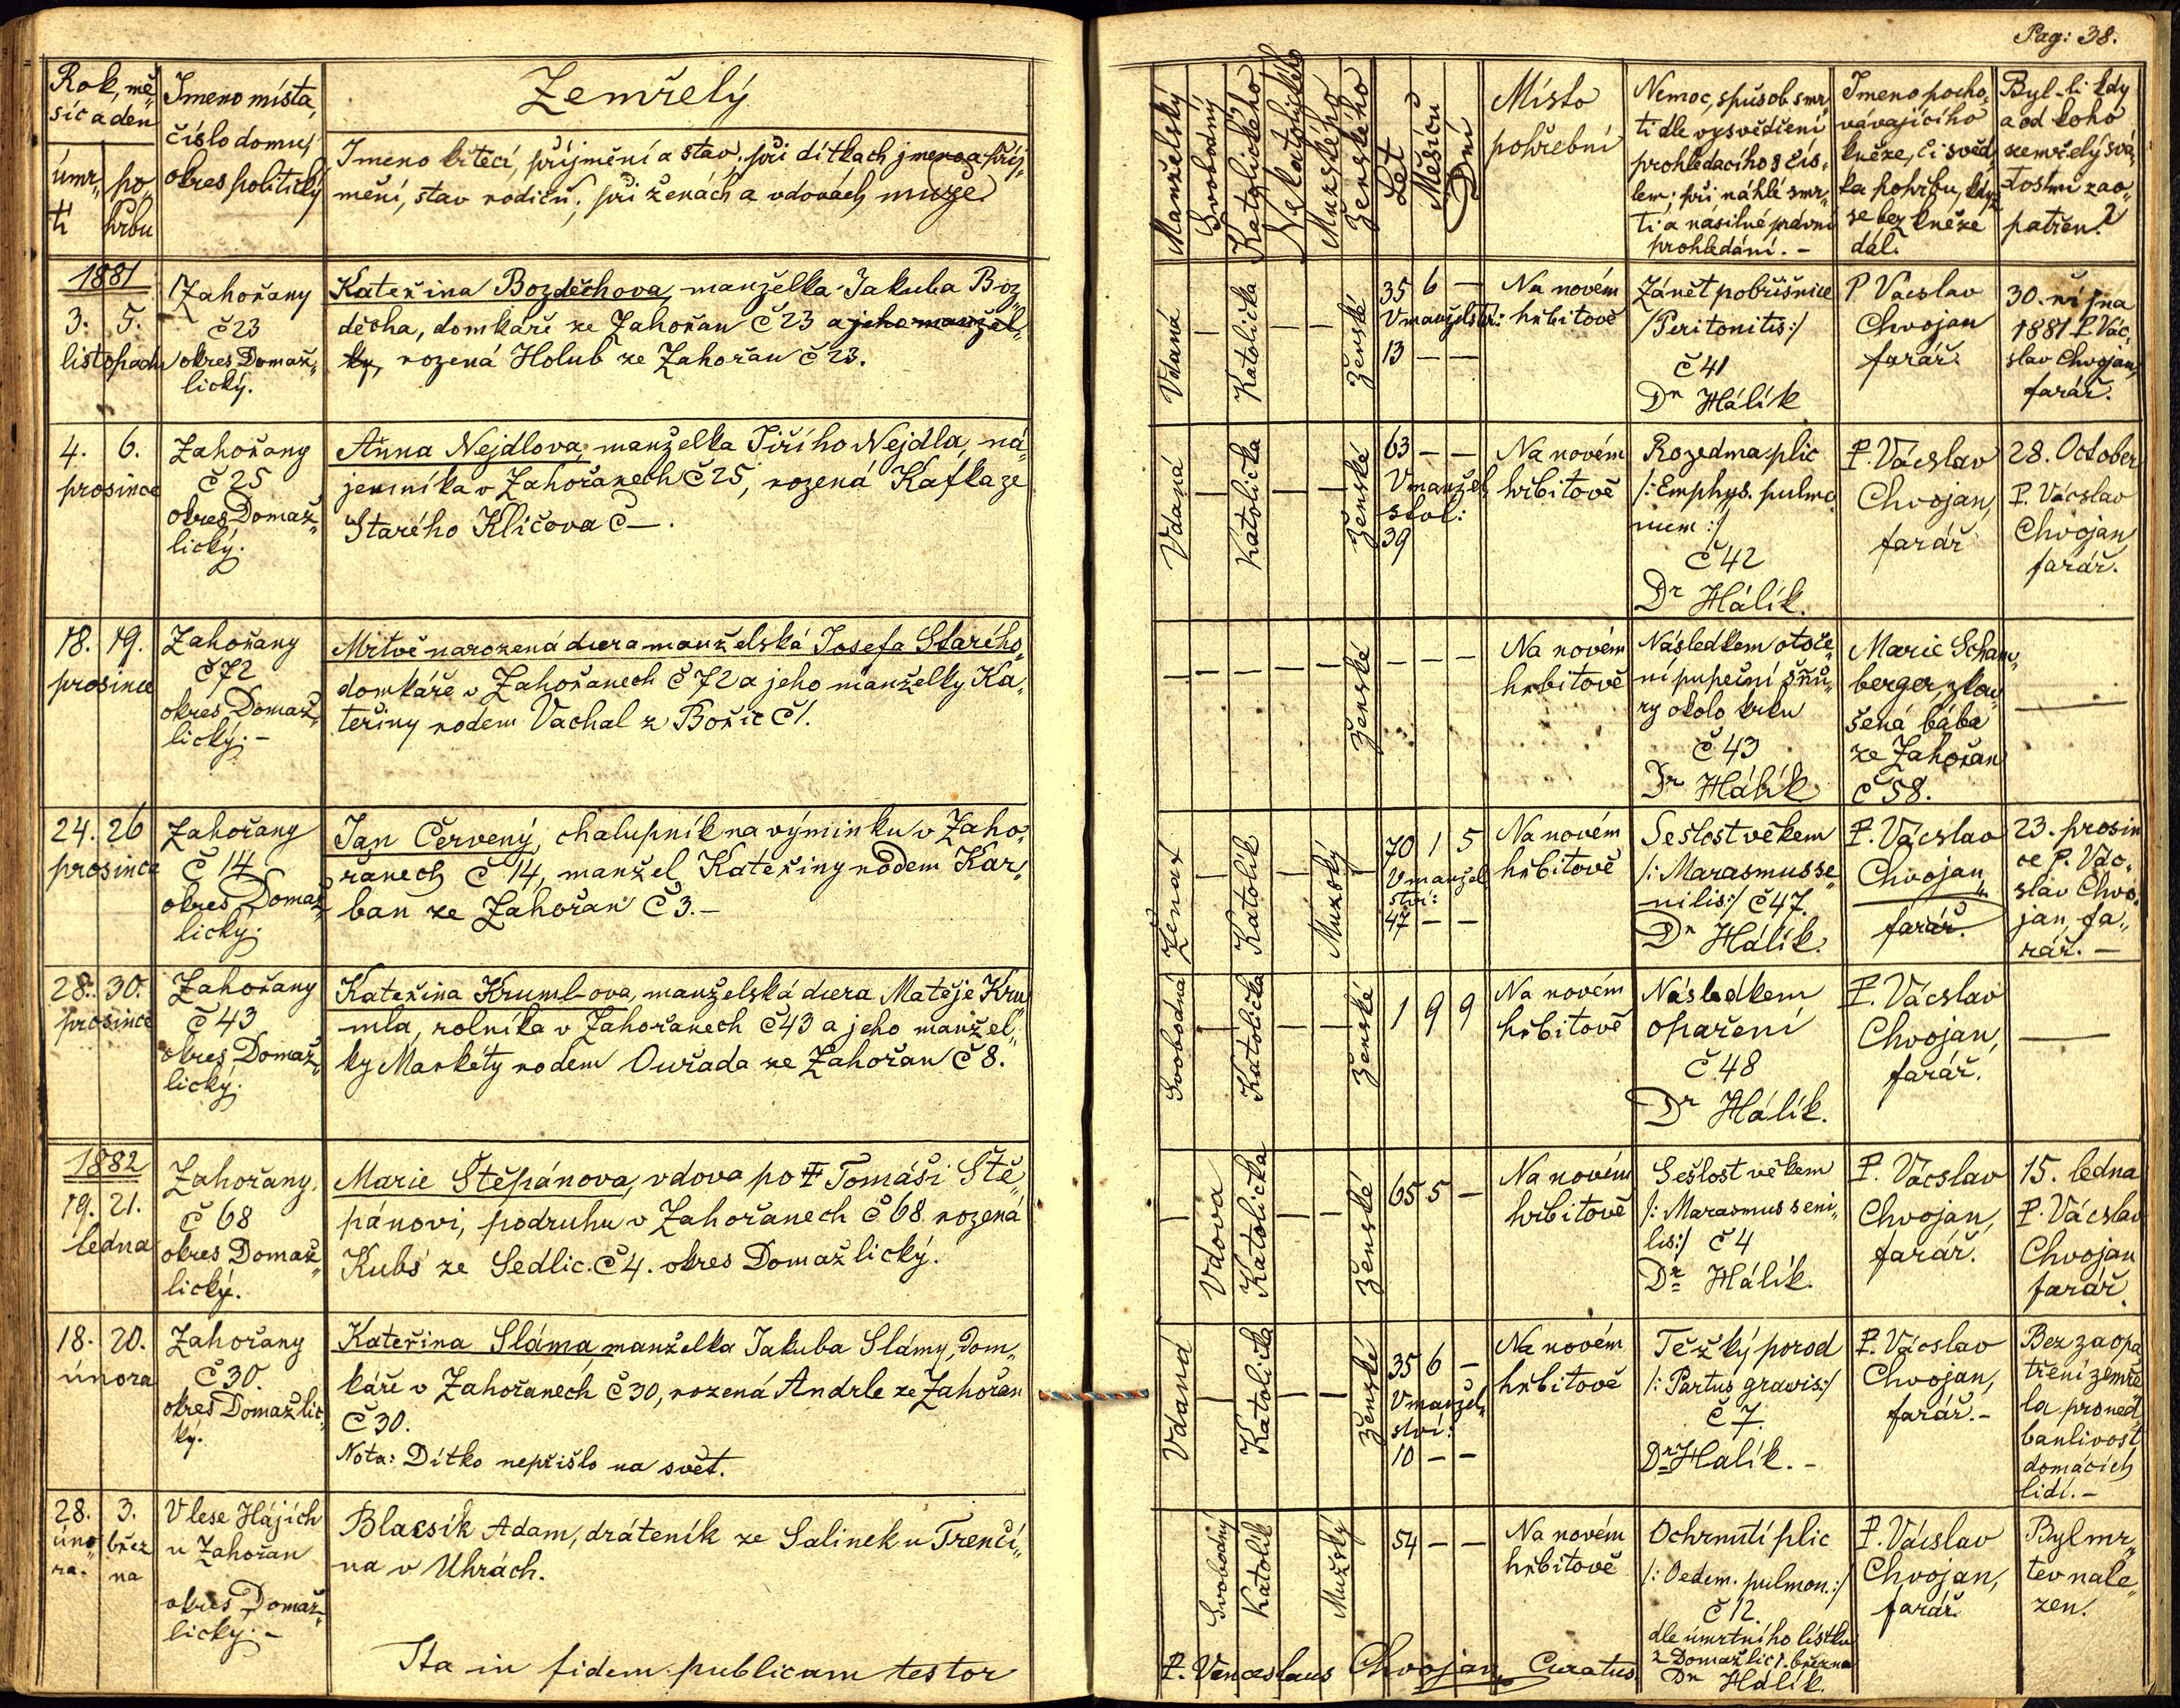 Pag: 38.
Rok, mě„
síc a den
úmr„
tí
po„
hřbu
Jmeno místa,
číslo domu,
okres politický
Zemřelý
Jmeno křtecí, příjmění a stav. při dítkach jmeno a příj„
mění, stav rodičů; při ženách a vdovách muže
Manželský
Svobodný
Katolického
Nekatolického
Mužského
Ženského
Let
Měsíců
Dní
Místo
pohřební
Nemoc, spůsob smr„
ti dle vysvědčení
prohledacího s čís„
lem; při náhlé smr„
ti a nasilné pravní
prohledání. –
Jmeno pocho„
vávajícího
kněze, či svěd„
ka pohřbu, když
se bez kněze
dál.
Byl-li kdy
a od koho
zemřelý svá„
tostmi zao„
patřen?
1881
3. 5.
listopadu
Zahořany
č 23
okres Domaž„
lický.
Kateřina Bozděchova, manželka Jakuba Boz
děcha, domkáře ze Zahořan č 23 a jeho manžel„
ky, rozená Holub ze Zahořan č 23.
Vdaná
Katolička
ženské
35 6 –
V manželstv:
13 – –
Na novém
hřbitově
Zánět pobřišnice
/Peritonitis:/
č 41
Dr Hálík
P Václav
Chvojan
farář.
30. října
1881 P. Vác„
slav Chvojan,
farář.
4. 6.
prosince
Zahořany
č 25
okres Domaž„
lický.
Anna Nejdlova, manželka Jiřího Nejdla, ná„
jemníka v Zahořanech č 25, rozená Kafka ze
Starého Kličova č –.
Vdaná
Katolička
ženské
63 – –
V manžel
stvl:
39
Na novém
hřbitově
Rozedma plic
/: Emphys. pulmo
num :/
č 42
Dr Hálík.
P. Vácslav
Chvojan,
farář
28. October
P. Vácslav
Chvojan
farář.
18. 19.
prosince
Zahořany
č 72
okres Domaž„
lický. –
Mrtvě narozená dcera manželská Josefa Starého,
domkáře v Zahořanech č 72 a jeho manželky Ka„
teřiny rodem Vachal z Bořic č 1.
ženské
– – –
Na novém
hřbitově
Následkem otoče„
ní pupeční šňů„
ry okolo krku
č 43
Dr Hálík
Marie Scham„
berger, zkou„
šená bába
ze Zahořan
č 58.
—
24. 26
prosince
Zahořany
č 14
okres Domaž„
lický.
Jan Červený, chalupník na výminku v Zaho„
řanech č 14, manžel Kateřiny rodem Kar„
ban ze Zahořan č 3. –
Ženat
Katolík
Mužský
70 1 5
V manžel
ství:
47 – –
Na novém
hřbitově
Sešlost věkem
/: Marasmus se„
nilis:/ č 47.
Dr Hálík.
P. Vácslav
Chvojan,
farář.
23. prosin
ce P. Vác„
slav Chvo„
jan, fa„
rář. –
28. 30.
prosince
Zahořany
č 43
okres Domaž„
lický.
Kateřina Kruml-ova, manželská dcera Matěje Kru„
mla, rolníka v Zahořanech č 43 a jeho manžel„
ky Markéty rodem Ouřada ze Zahořan č 8.
Svobodná
Katolička
ženské
1 9 9
Na novém
hřbitově
Následkem
opaření
č 48
Dr Hálík.
P. Vácslav
Chvojan,
farář.
—
1882
19. 21.
ledna
Zahořany,
č 68
okres Domaž„
lický.
Marie Štěpánova, vdova po † Tomáši Ště„
pánovi, podruhu v Zahořanech č 68 rozená
Kubs ze Sedlic. č 4. okres Domažlický.
Vdova
Katolička
ženské
65 5 –
Na novém
hřbitově
Sešlost věkem
/: Marasmus seni„
lis:/ č 4
Dr Hálík.
P. Vácslav
Chvojan,
farář.
15. ledna
P. Vácslav
Chvojan
farář.
18. 20.
února
Zahořany
č 30.
okres Domažlic„
ký.
Kateřina Sláma, manželka Jakuba Slámy, dom„
káře v Zahořanech č 30, rozená Andrle ze Zahořan
č 30.
Nota: Dítko nepřišlo na svět.
Vdaná
Katolička
ženské
35 6 –
V manžel„
ství:
10 – –
Na novém
hřbitově
Težký porod
/: Partus gravis:/
č 7.
Dr Halík. –
P. Vácslav
Chvojan,
farář. –
Bez zaopa
tření zemře„
la pro ned„
banlivost
domácích
lidí. –
28.
úno„
ra.
3.
břez
na
V lese Hájích
u Zahořan
okres Domaž„
lický. –
Blacsík Adam, dráteník ze Salinek u Trenčí„
na v Uhrách.
Svobodný
Katolík
Mužský
54 – –
Na novém
hřbitově
Ochrnutí plic
/: Oedem. pulmon.:/
č 12.
dle úmrtního lístku
z Domažlic 1. března
Dr Hálík.
P. Vácslav
Chvojan,
farář.
Byl mr„
tev nale„
zen.
Ita in fidem publicam testor
P. Venceslaus Chvojan, Curatus